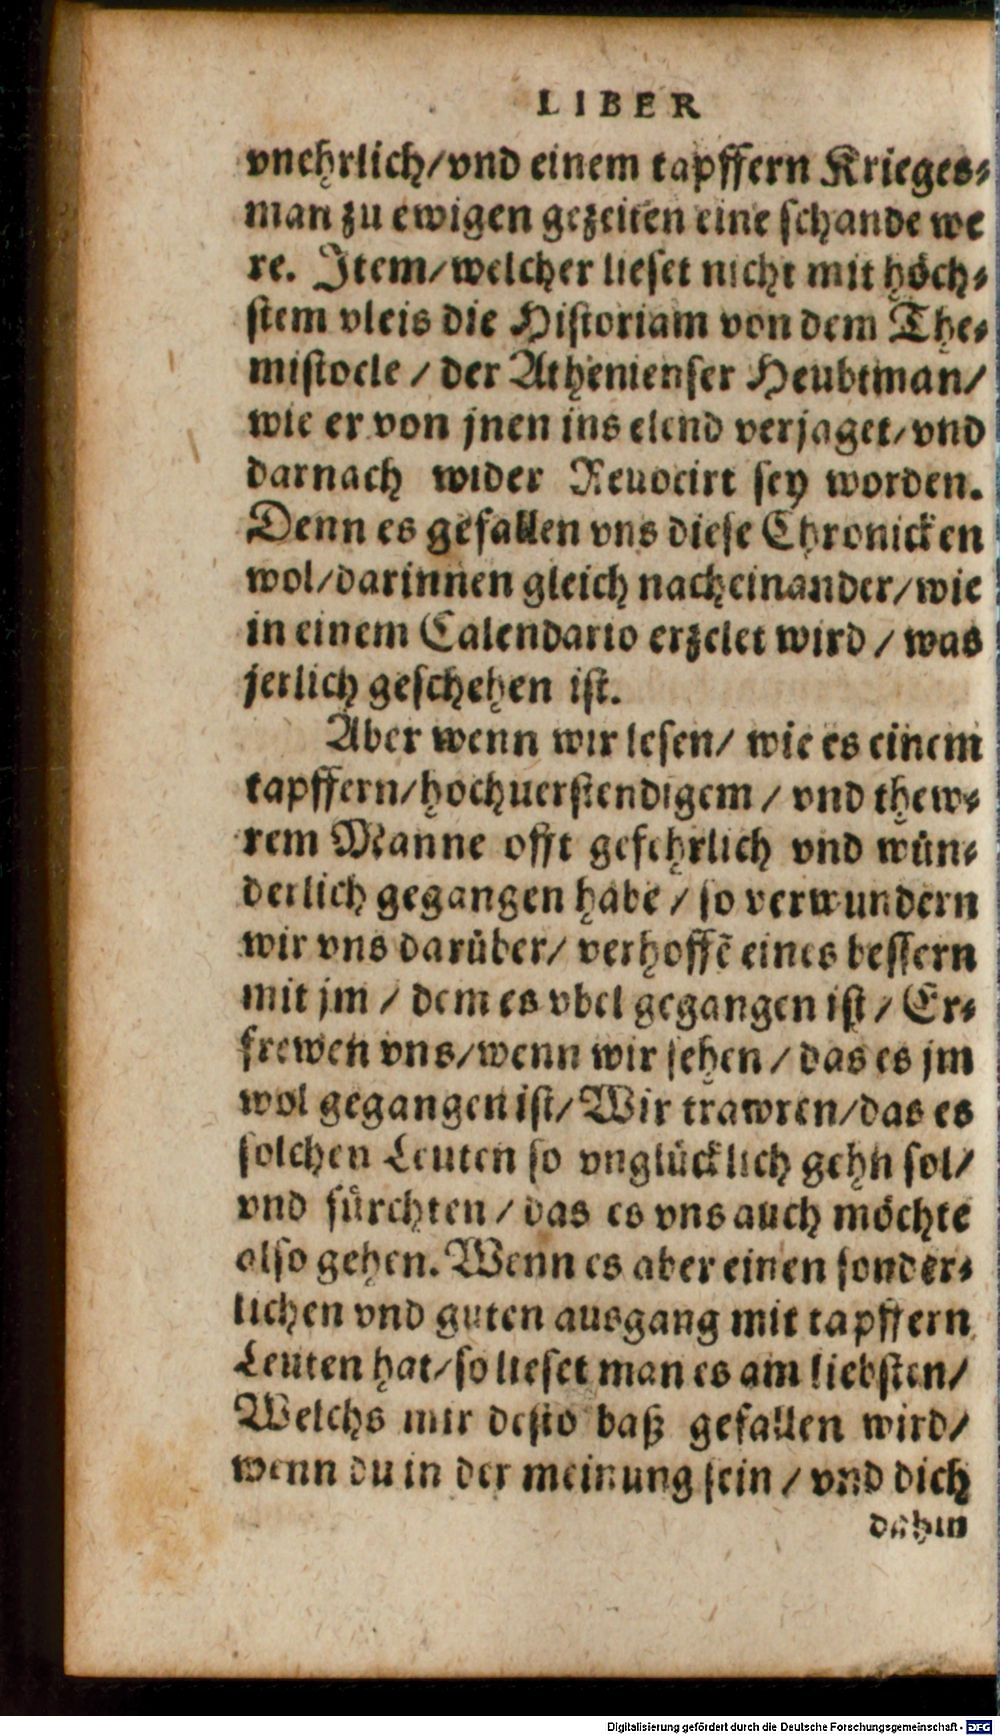 LIBER
vnehrlich/vnd einem tapffern Krieges⸗
man zu ewigen gezeiten eine schande we
re. Item/welcher lieset nicht mit höch⸗
stem vleis die Historiam von dem The⸗
mistocle / der Athenienser Heubtman/
wie er von jnen ins elend verjaget/vnd
darnach wider Reuocirt sey worden.
Denn es gefallen vns diese Chronicken
wol/darinnen gleich nacheinander/wie
in einem Calendario erzelet wird / was
jerlich geschehen ist.
Aber wenn wir lesen/ wie es einem
tapffern/hochuerstendigem / vnd thew⸗
rem Manne offt gefehrlich vnd wün⸗
derlich gegangen habe / so verwundern
wir vns darüber/ verhoffẽ eines bessern
mit jm / dem es vbel gegangen ist / Er⸗
frewen vns/wenn wir sehen / das es jm
wol gegangen ist/ Wir trawren/das es
solchen Leuten so vnglücklich gehn sol/
vnd fürchten / das es vns auch möchte
also gehen. Wenn es aber einen sonder⸗
lichen vnd guten ausgang mit tapffern
Leuten hat/so lieset man es am liebsten/
Welchs mir desto baß gefallen wird/
wenn du in der meinung sein / vnd dich
dahin
Digitalisierung gefördert durch die Deutsche Forschungsgemeinschaft - DFG